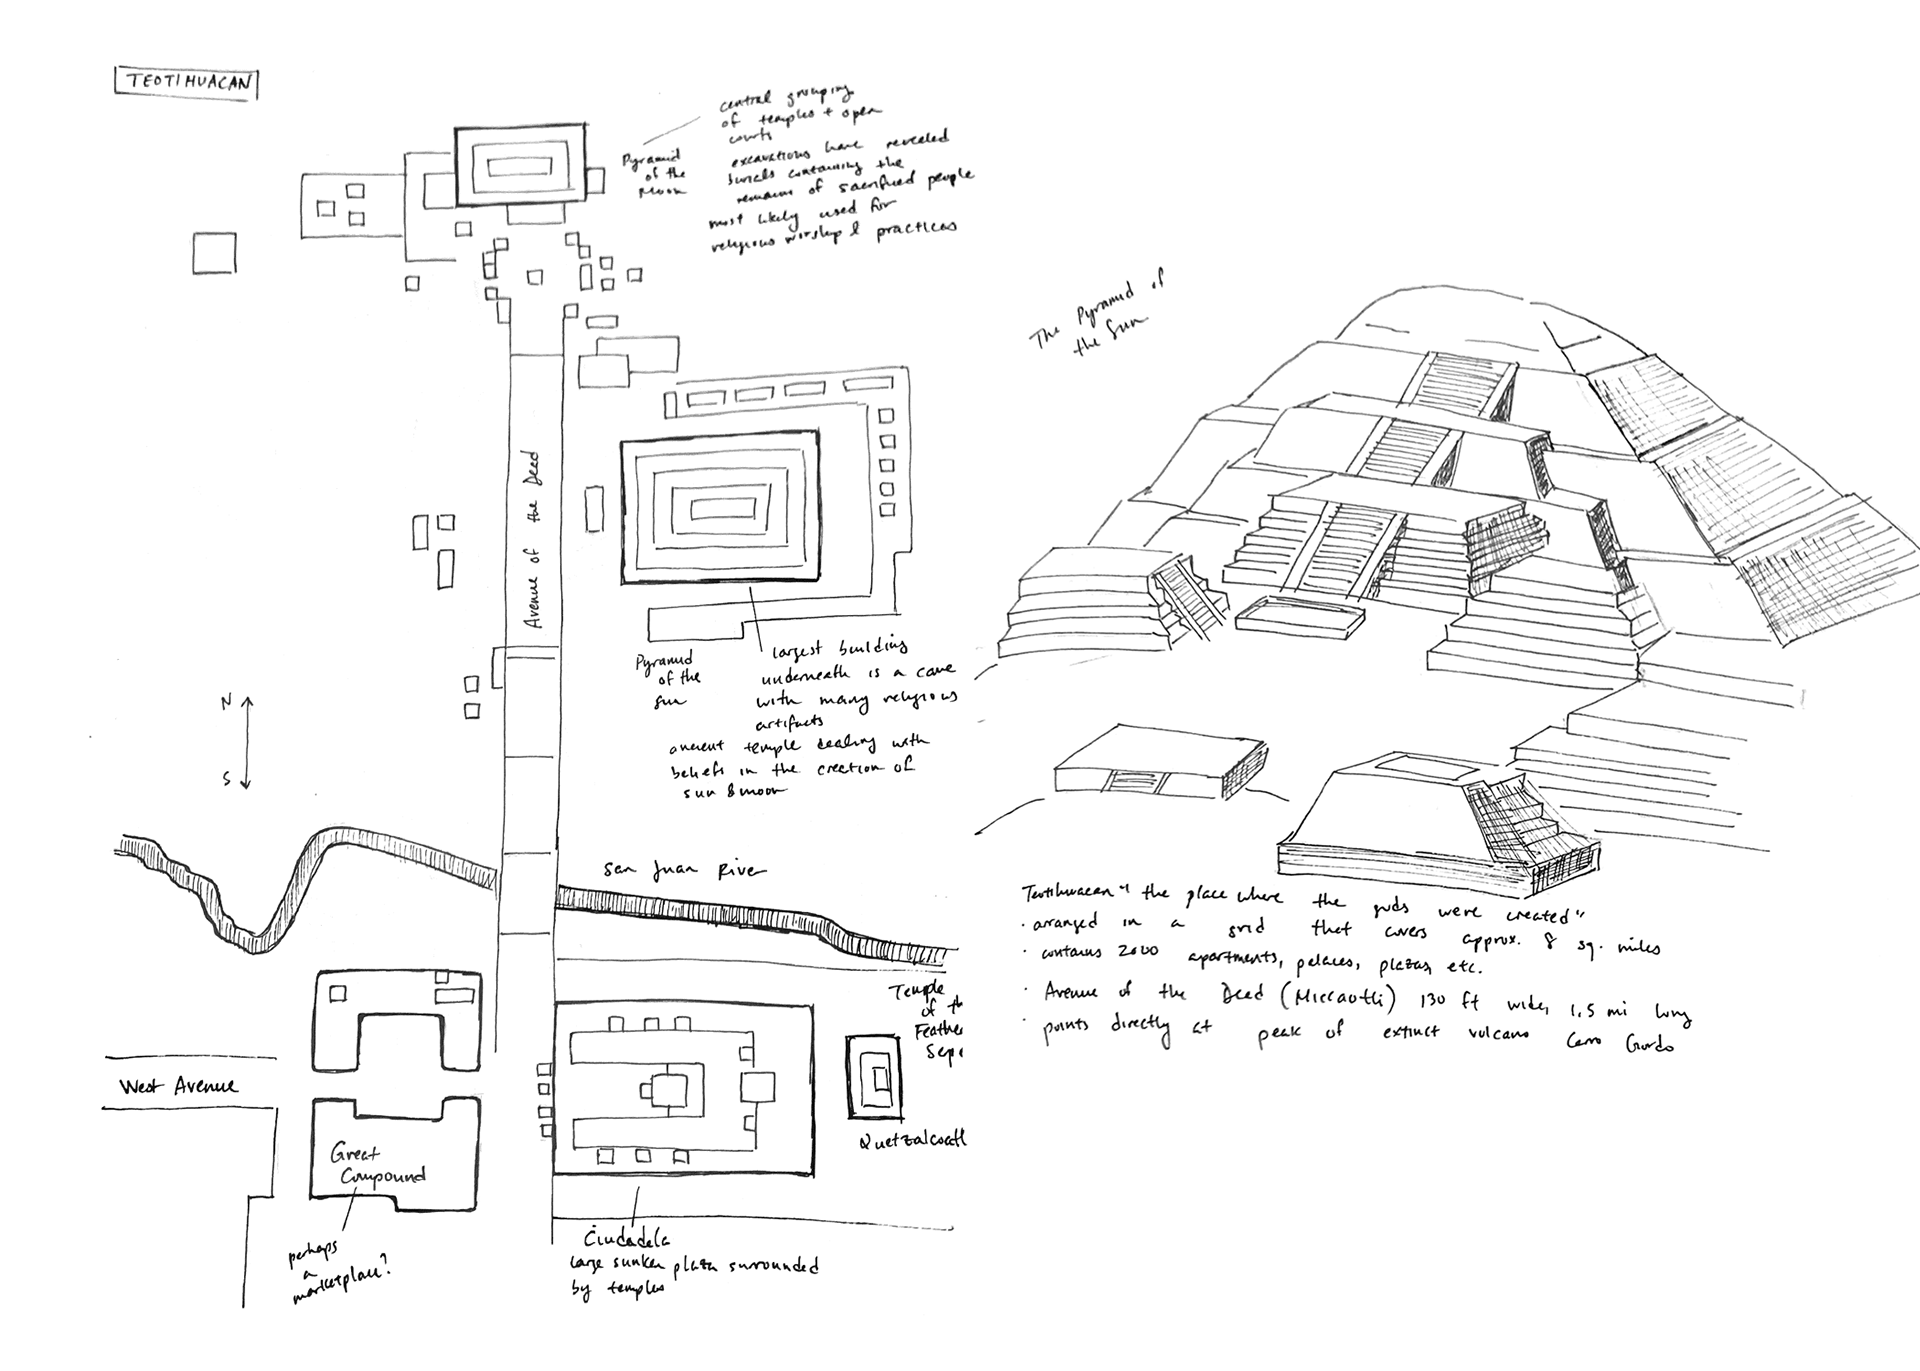 TEOTIHUACAN
Pyramid
of the
Moon
central grouping
of temples + open
courts
excavations have revealed
burials containing the
remains of sacrificed people
most likely used for
religious worship & practices
The Pyramid of
the Sun
Avenue of the Dead
Pyramid
of the
Sun
largest building
underneath is a cave
with many religious
artifacts
ancient temple dealing with
beliefs in the creation of
sun & moon
N
S
San Juan River
Teotihuacan "the place where the gods were created"
· arranged in a grid that covers approx. 8 sq. miles
· contains 2000 apartments, palaces, plazas, etc.
· Avenue of the Dead (Miccaotli) 130 ft wide, 1.5 mi long
· points directly at peak of extinct volcano Cerro Gordo
Temple
of th
Feather
Serp
Quetzalcoatl
West Avenue
Great
Compound
perhaps
a
marketplace?
Ciudadela
large sunken plaza surrounded
by temples